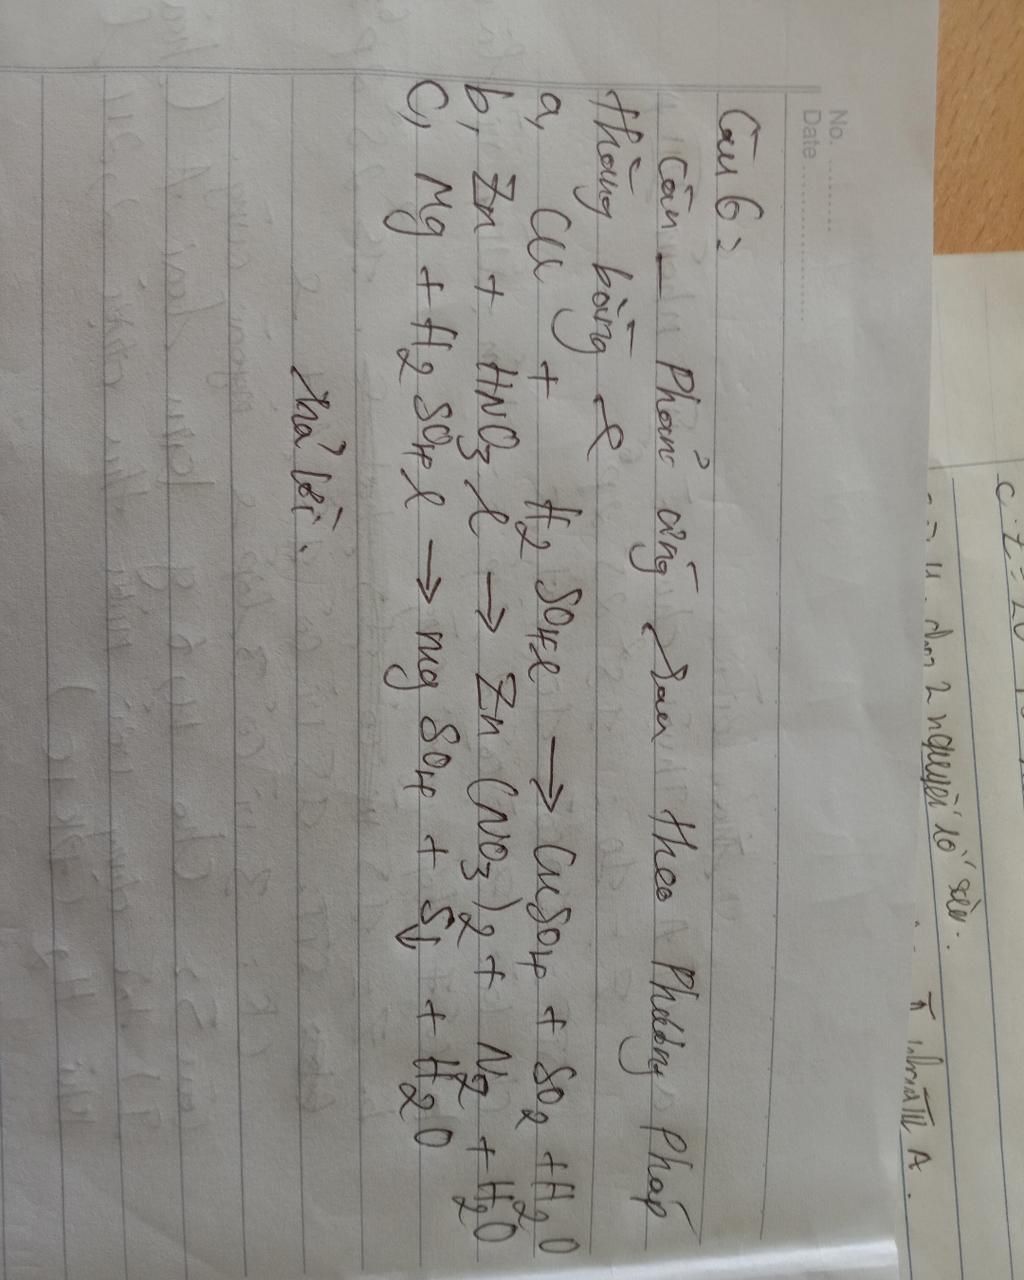 No. ............
Date ........................
Câu 6:
Cân _ Phản ứng Sau theo Phương Pháp
thăng bằng e
a, Cu + H2SO4đ → CuSO4 + SO2 + H2O
b, Zn + HNO3 l → Zn(NO3)2 + N2 + H2O
c, Mg + H2SO4 l → mg SO4 + S↓ + H2O
trả lời:
nguyên tố
nhóm III A.